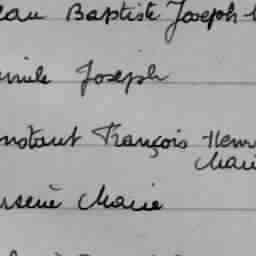 eau Baptiste Joseph
mile Joseph
nstant François Henr
Marie
rsène Marie